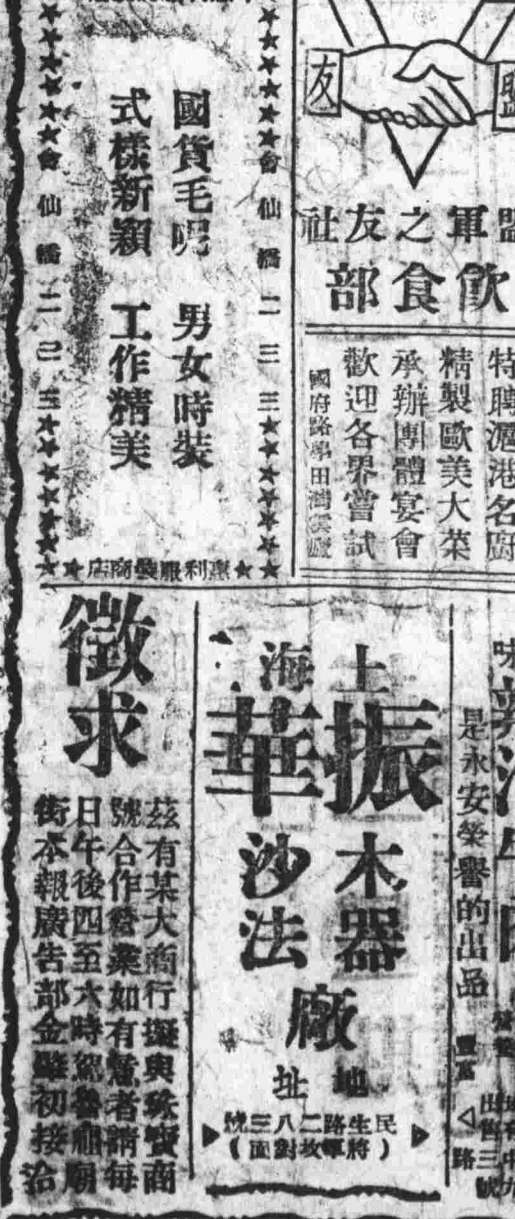 友 盟
盟軍之友社
飲食部
特聘滬港名廚
精製歐美大菜
承辦團體宴會
歡迎各界嘗試
國府路學田灣
會仙橋二三三
國貨毛呢 男女時裝
式樣新穎 工作精美
會仙橋二三三
惠利服裝商店
是永安榮譽的出品
上海
振華
木器
沙法
廠
地址
民生路二八三號
(將軍墳對面)
徵求
茲有某大商行擬與珠寶商
號合作營業如有意者請每
日午後四至六時
街本報廣告部金 初接洽